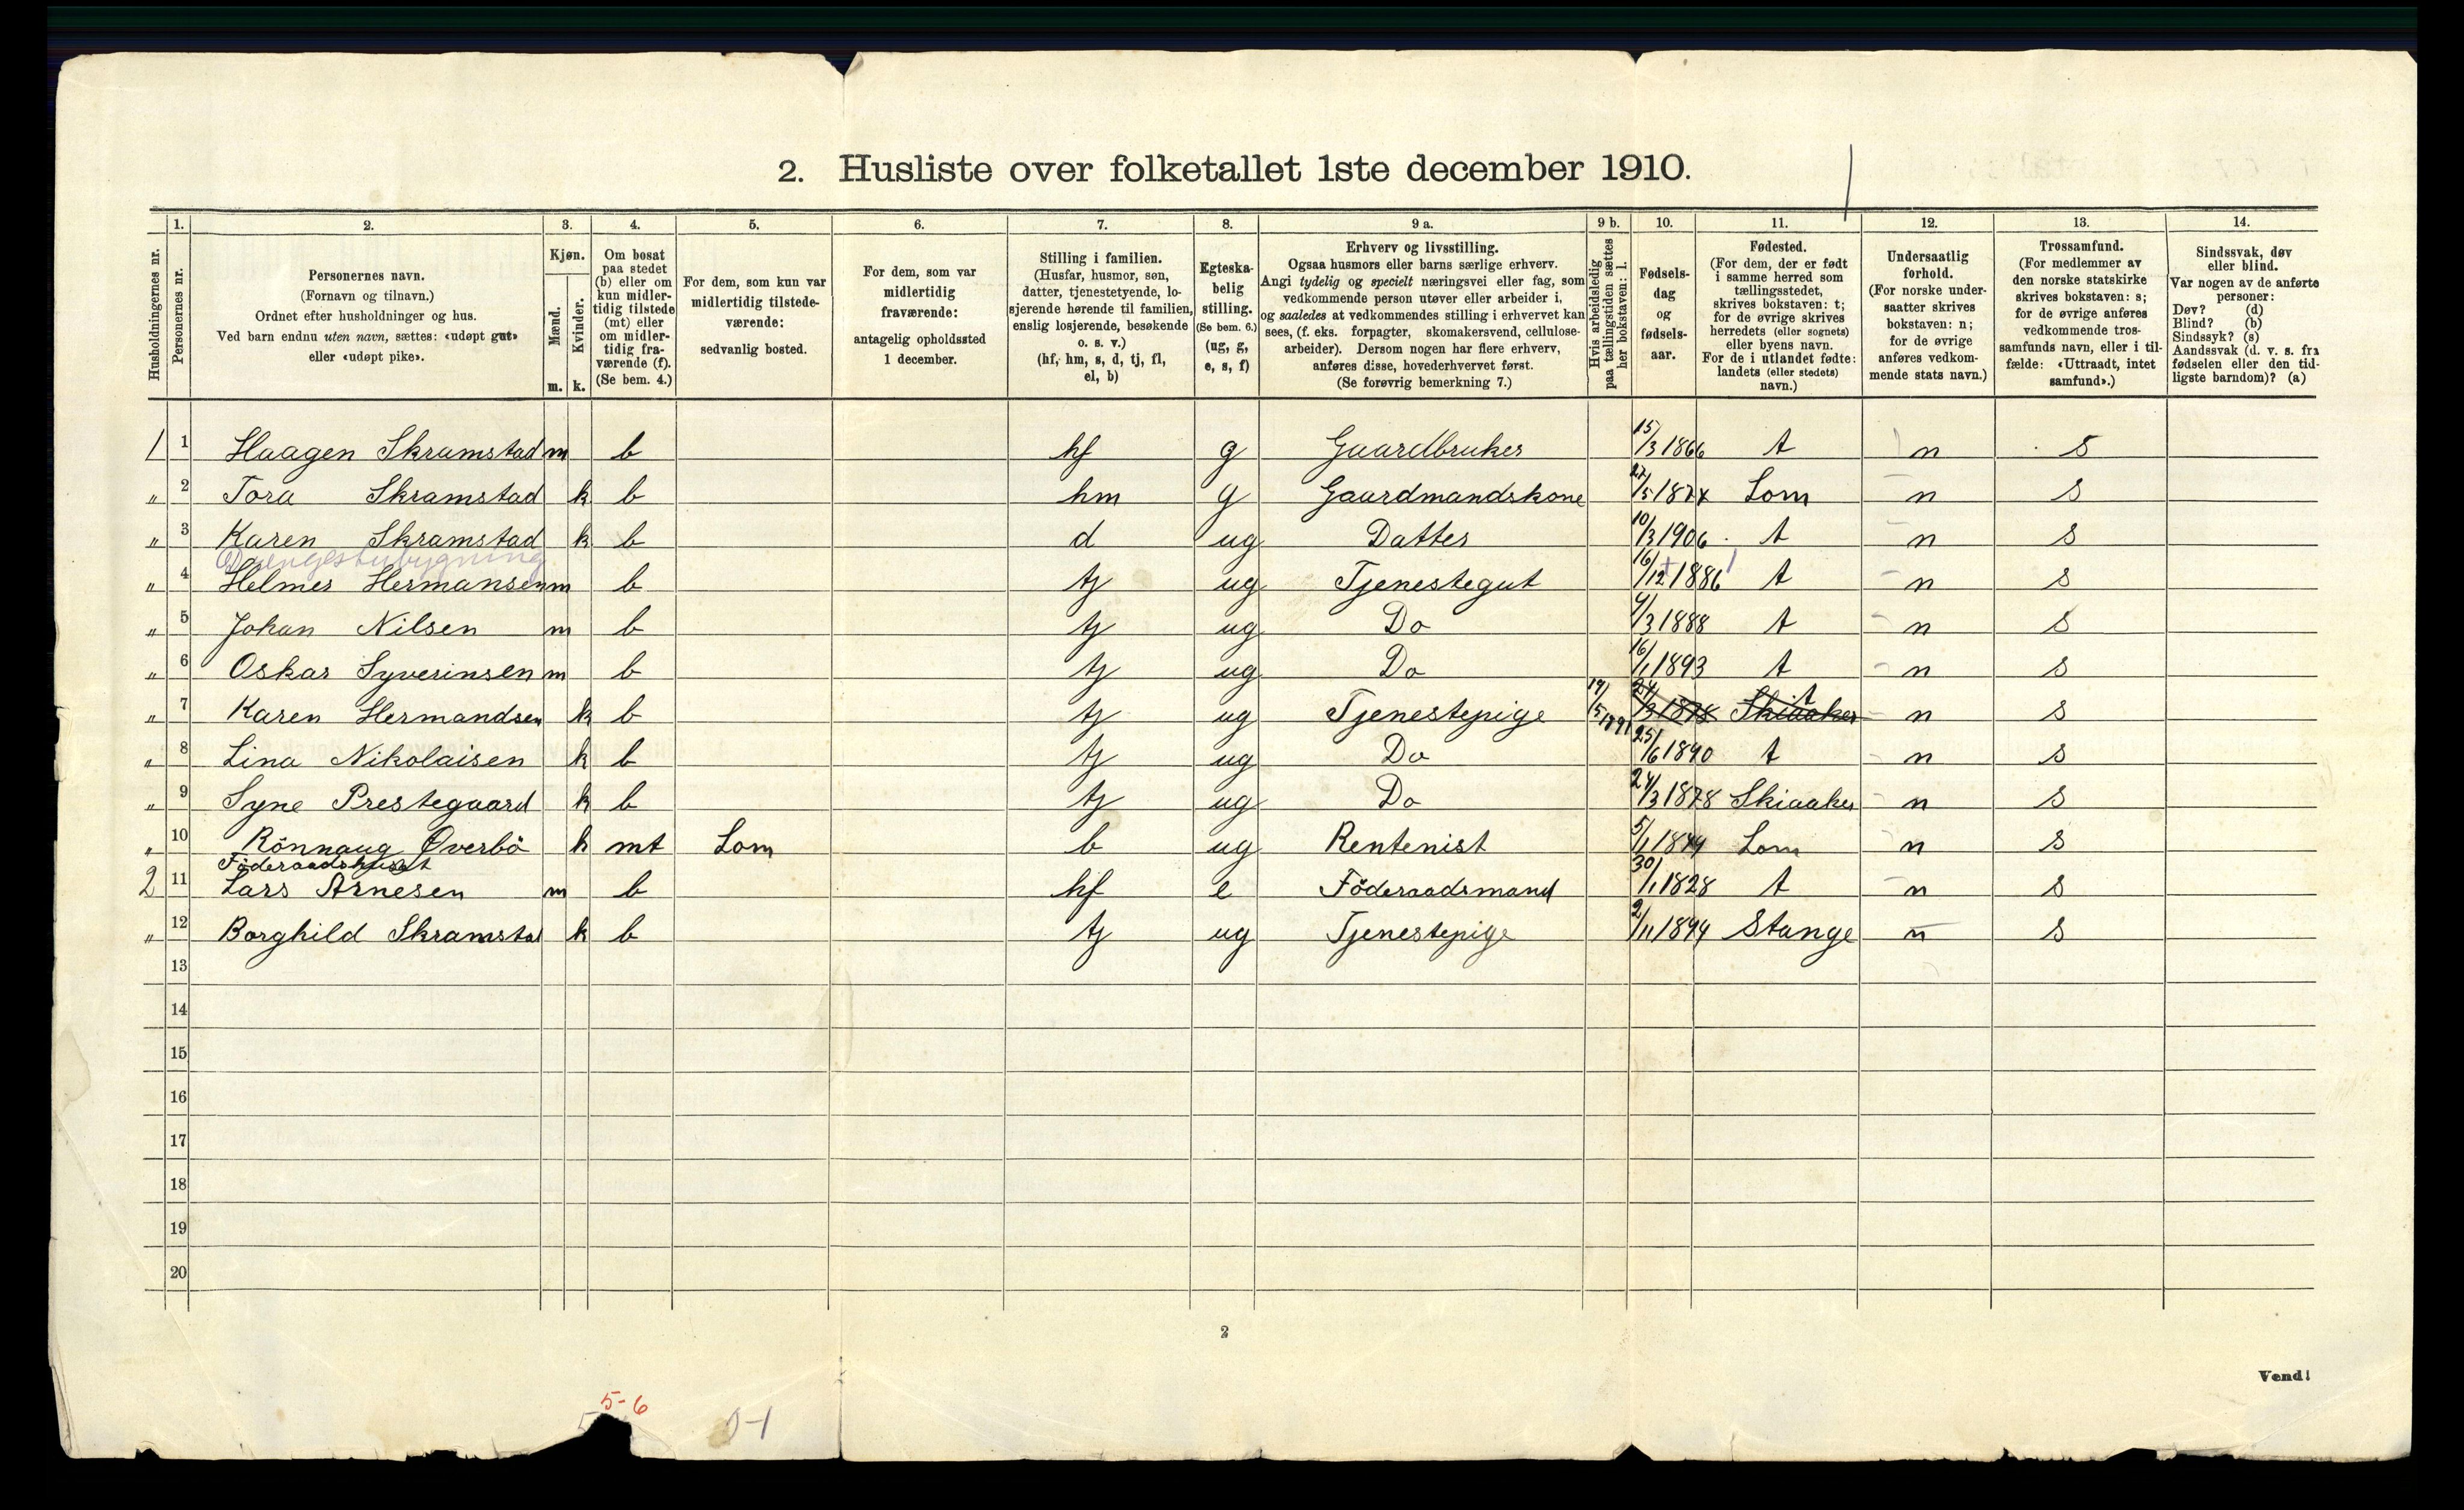 2. Husliste over folketallet 1ste december 1910.
1. 2. 3. 4. 5. 6. 7. 8. 9 a. 9 b. 10. 11. 12. 13. 14.
Husholdningernes nr.
Personernes nr.
Personernes navn.
(Fornavn og tilnavn.)
Ordnet efter husholdninger og hus.
Ved barn endnu uten navn, sættes: «udøpt gut»
eller «udøpt pike».
Kjøn.
Mænd.
Kvinder.
m. k.
Om bosat
paa stedet
(b) eller om
kun midler-
tidig tilstede
(mt) eller
om midler-
tidig fra-
værende (f).
(Se bem. 4.)
For dem, som kun var
midlertidig tilstede-
værende:
sedvanlig bosted.
For dem, som var
midlertidig
fraværende:
antagelig opholdssted
1 december.
Stilling i familien.
(Husfar, husmor, søn,
datter, tjenestetyende, lo-
sjerende hørende til familien,
enslig losjerende, besøkende
o. s. v.)
(hf, hm, s, d, tj, fl,
el, b)
Egteska-
belig
stilling.
(Se bem. 6.)
(ug, g,
e, s, f)
Erhverv og livsstilling.
Ogsaa husmors eller barns særlige erhverv.
Angi tydelig og specielt næringsvei eller fag, som
vedkommende person utøver eller arbeider i,
og saaledes at vedkommendes stilling i erhvervet kan
sees, (f. eks. forpagter, skomakersvend, cellulose-
arbeider). Dersom nogen har flere erhverv,
anføres disse, hovederhvervet først.
(Se forøvrig bemerkning 7.)
Hvis arbeidsledig
paa tællingstiden sættes
her bokstaven: l.
Fødsels-
dag
og
fødsels-
aar.
Fødested.
(For dem, der er født
i samme herred som
tællingsstedet,
skrives bokstaven: t;
for de øvrige skrives
herredets (eller sognets)
eller byens navn.
For de i utlandet fødte:
landets (eller stedets)
navn.)
Undersaatlig
forhold.
(For norske under-
saatter skrives
bokstaven: n;
for de øvrige
anføres vedkom-
mende stats navn.)
Trossamfund.
(For medlemmer av
den norske statskirke
skrives bokstaven: s;
for de øvrige anføres
vedkommende tros-
samfunds navn, eller i til-
fælde: «Uttraadt, intet
samfund».)
Sindssvak, døv
eller blind.
Var nogen av de anførte
personer:
Døv? (d)
Blind? (b)
Sindssyk? (s)
Aandssvak (d. v. s. fra
fødselen eller den tid-
ligste barndom)? (a)
1 1 Haagen Skramstad m b hf g Gaardbruker 15/3 1866 t n s
" 2 Tora Skramstad k b hm g Gaardmandskone /5 187 Lom n s
" 3 Karen Skramstad k b d ug Datter 10/3 1906 t n s
Drengestubygning
" 4 Helmer Hermansen m b tj ug Tjenestegut 16/12 1886 t n s
" 5 Johan Nilsen m b tj ug Do 4/3 1888 t n s
" 6 Oskar Syverinsen m b tj ug Do 16/1 1893 t n s
" 7 Karen Hermandsen k b tj ug Tjenestepige 19/5 1891 24/3 1878 Skiaaker t n s
" 8 Lina Nikolaisen k b tj ug Do 25/6 1890 t n s
" 9 Syne Prestegaard k b tj ug Do 24/3 1878 Skiaaker n s
" 10 Rönnaug Øverbö k mt Lom b ug Rentenist 5/1 1844 Lom n s
Föderaadshuset
2 11 Lars Arnesen m b hf e Föderaadsmand 30/1 1828 t n s
" 12 Borghild Skramstad k b tj ug Tjenestepige 2/11 1894 Stange n s
13
14
15
16
17
18
19
20
2
Vend!
5-6
0-1